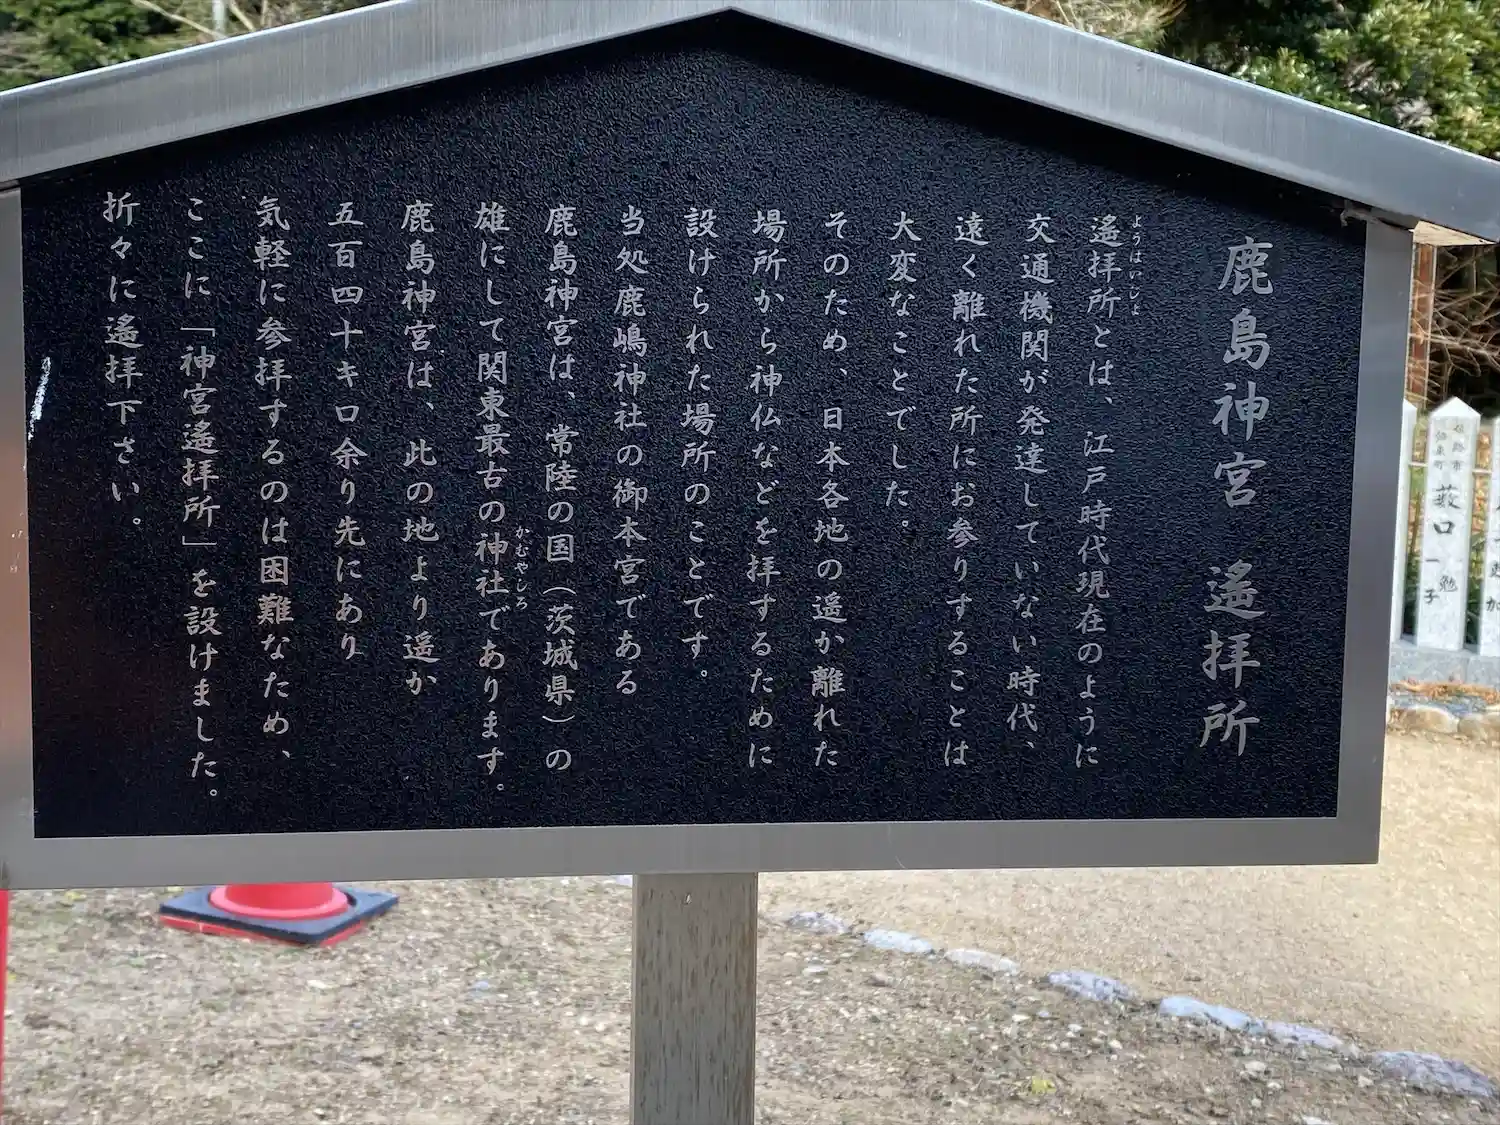 鹿島神宮 遙拝所
遙拝所とは、江戸時代現在のように
ようはいじょ
交通機関が発達していない時代、
遠く離れた所にお参りすることは
大変なことでした。
そのため、日本各地の遥か離れた
場所から神仏などを拝するために
設けられた場所のことです。
当処鹿嶋神社の御本宮である
鹿島神宮は、常陸の国（茨城県）の
雄にして関東最古の神社であります。
かむやしろ
鹿島神宮は、此の地より遥か
五百四十キロ余り先にあり
気軽に参拝するのは困難なため、
ここに「神宮遙拝所」を設けました。
折々に遙拝下さい。
姫路市
藪口
勉
一子